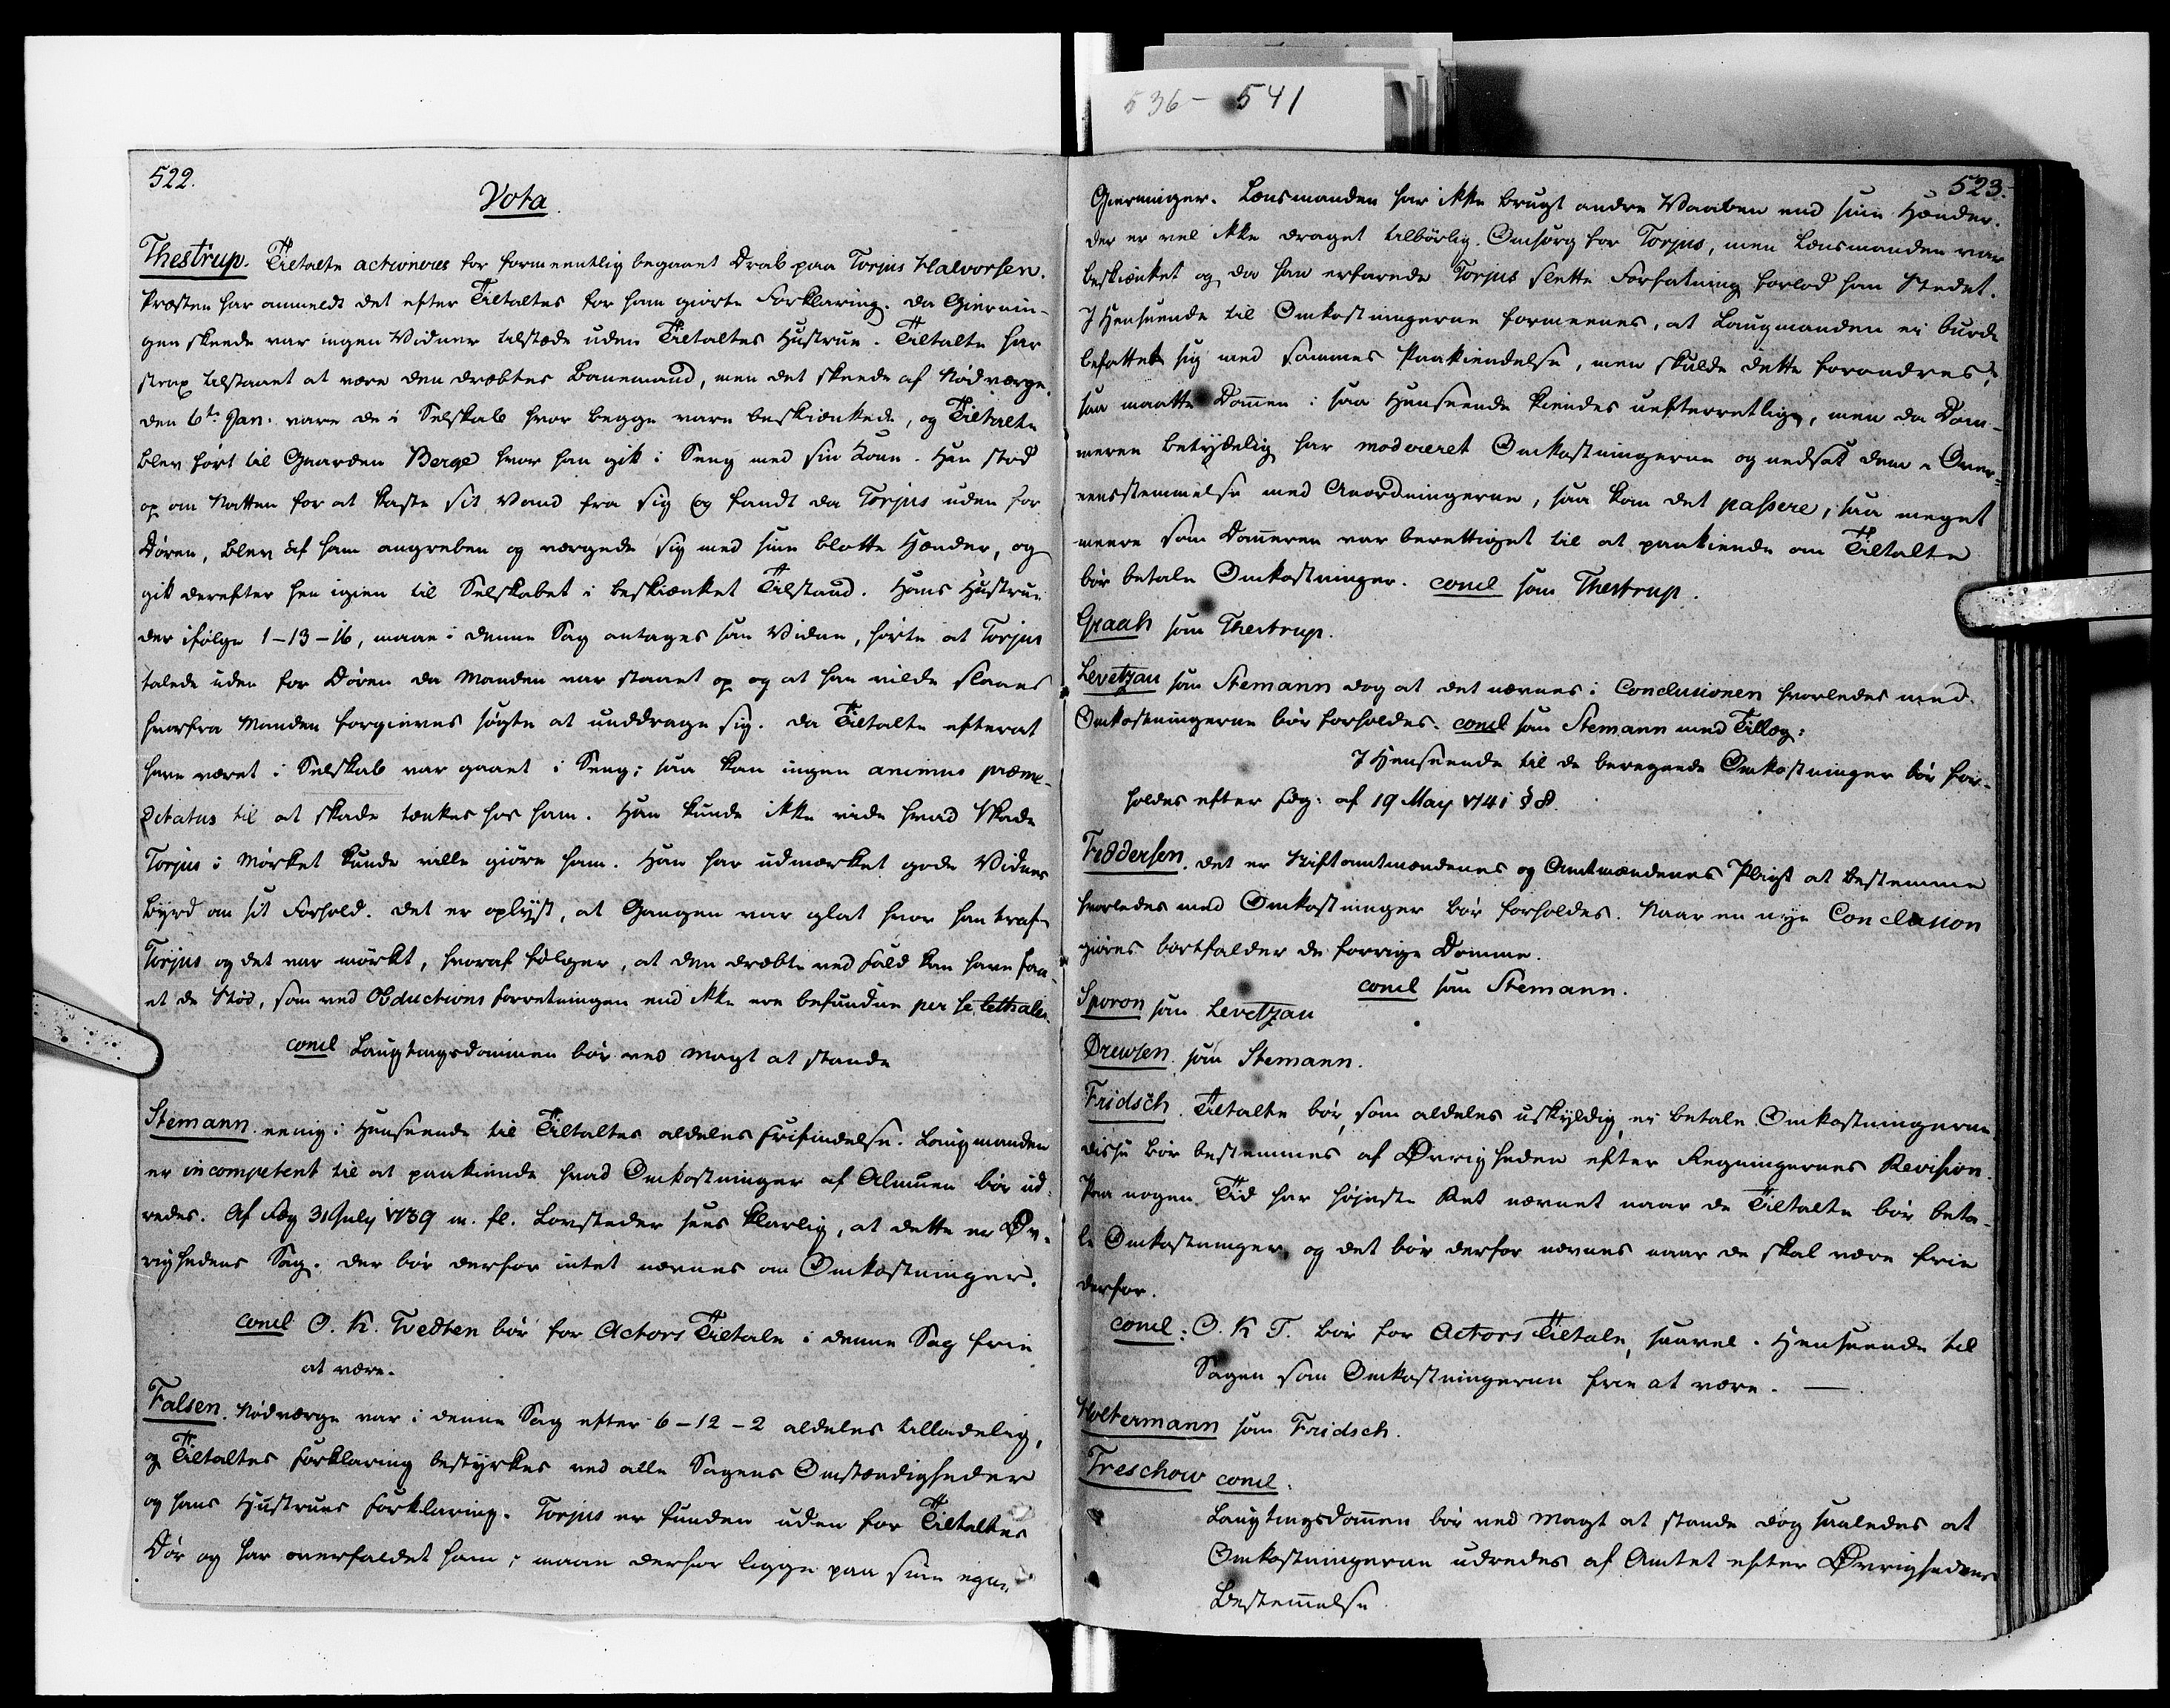 536 - 541
522.
Vota
Thestrup. Tiltalte actioneres for formeentlig begaaet Drab paa Torjus Halvorsen.
Præsten har anmeldt det efter Tiltaltes for ham giorte Forklaring. Da Giernin-
gen skeede var ingen Vidner tilstæde uden Tiltaltes Hustrue. Tiltalte har
strax tilstaaet at være den dræbtes Banemand, men det skeede af Nødværge.
den 6te Jan. vare de i Selskab hvor begge vare beskiænkede, og Tiltalte
blev ført til Gaarden Berge hvor han gik i Seng med sin Kone. Han stod
op om Natten for at kaste sit Vand fra sig og fandt da Torjus uden for
Døren, blev af ham angreben og værgede sig med sine blotte Hænder, og
gik derefter hen igien til Selskabet i beskiænket Tilstand. Hans Hustrue
der ifølge 1-13-16, maae i denne Sag antages som Vidne, hørte at Torjus
talede uden for Døren da Manden var staaet op og at han vilde slaaes
hvorfra Manden forgieves søgte at unddrage sig. Da Tiltalte efterat
have været i Selskab var gaaet i Seng; saa kan ingen animus præme-
ditatus til at skade tænkes hos ham. Han kunde ikke vide hvad Skade
Torjus i Mørket kunde ville giøre ham. Han har udmærket gode Vidnes
byrd om sit Forhold. Det er oplyst, at Gangen var glat hvor han traf
Torjus og det var mørkt, hvoraf følger, at den dræbte ved Fald kan have faa-
et de Stød, som ved Obductions forretningen end ikke ere befundne per se lethales.
concl Laugtingsdommen bør ved Magt at stande
Stemann. eenig i Henseende til Tiltaltes aldeles Frifindelse. Laugmanden
er incompetent til at paakiende hvad Omkostninger af Almuen bør ud-
redes. Af Fdg 31 July 1739 m. fl. Lovsteder sees klarlig, at dette er Øv-
righedens Sag. Der bør derfor intet nævnes om Omkostninger.
concl O. K. Tvedten bør for Actors Tiltale i denne Sag frie
at være.
Falsen. Nødværge var i denne Sag efter 6-12-2 aldeles tilladelig,
og Tiltaltes Forklaring bestyrkes ved alle Sagens Omstændigheder
og hans Hustrues Forklaring. Torjus er funden uden for Tiltaltes
Dør og har overfaldet ham; maae derfor ligge paa sine egne
523.
Gierninger. Lensmanden har ikke brugt andre Vaaben end sine Hænder.
Der er vel ikke draget tilbørlig Omsorg for Torjus, men Lensmanden var
beskiænket og da han erfarede Torjus slette Forfatning forlod han Stedet.
I Henseende til Omkostningerne formeenes, at Laugmanden ei burde
befattet sig med sammes Paakiendelse, men skulde dette forandres,
saa maatte Dommen i saa Henseende kiendes uefterrettelig, men da Dom-
meren betydelig har modereret Omkostningerne og nedsat dem i Over-
eensstemmelse med Anordningerne, saa kan det passere, saa meget
meere som Dommeren var berettiget til at paakiende om Tiltalte
bør betale Omkostninger. concl som Thestrup.
Graah som Thestrup.
Levetzau som Stemann dog at det nævnes i Conclusionen hvorledes med
Omkostningerne bør forholdes. concl som Stemann med Tillæg:
I Henseende til de beregnede Omkostninger bør for-
holdes efter Fdg: af 19 May 1741 § 8.
Feddersen. Det er Stiftamtmændenes og Amtmændenes Pligt at bestemme
hvorledes med Omkostninger bør forholdes. Naar en nye Conclusion
giøres bortfalder de forrige Domme.
concl som Stemann.
Sporon som Levetzau
Drewsen som Stemann.
Fridsch. Tiltalte bør, som aldeles uskyldig, ei betale Omkostningerne
disse bør bestemmes af Øvrigheden efter Regningernes Revision.
Paa nogen Tid har høieste Ret nævnet naar de Tiltalte bør beta-
le Omkostninger og det bør derfor nævnes naar de skal være frie
derfor.
concl: O. K T. bør for Actors Tiltale, saavel i Henseende til
Sagen som Omkostningerne frie at være. —
Holtermann som Fridsch.
Treschow concl.
Laugtingsdommen bør ved Magt at stande dog saaledes at
Omkostningerne udredes af Amtet efter Øvrighedens
Bestemmelse